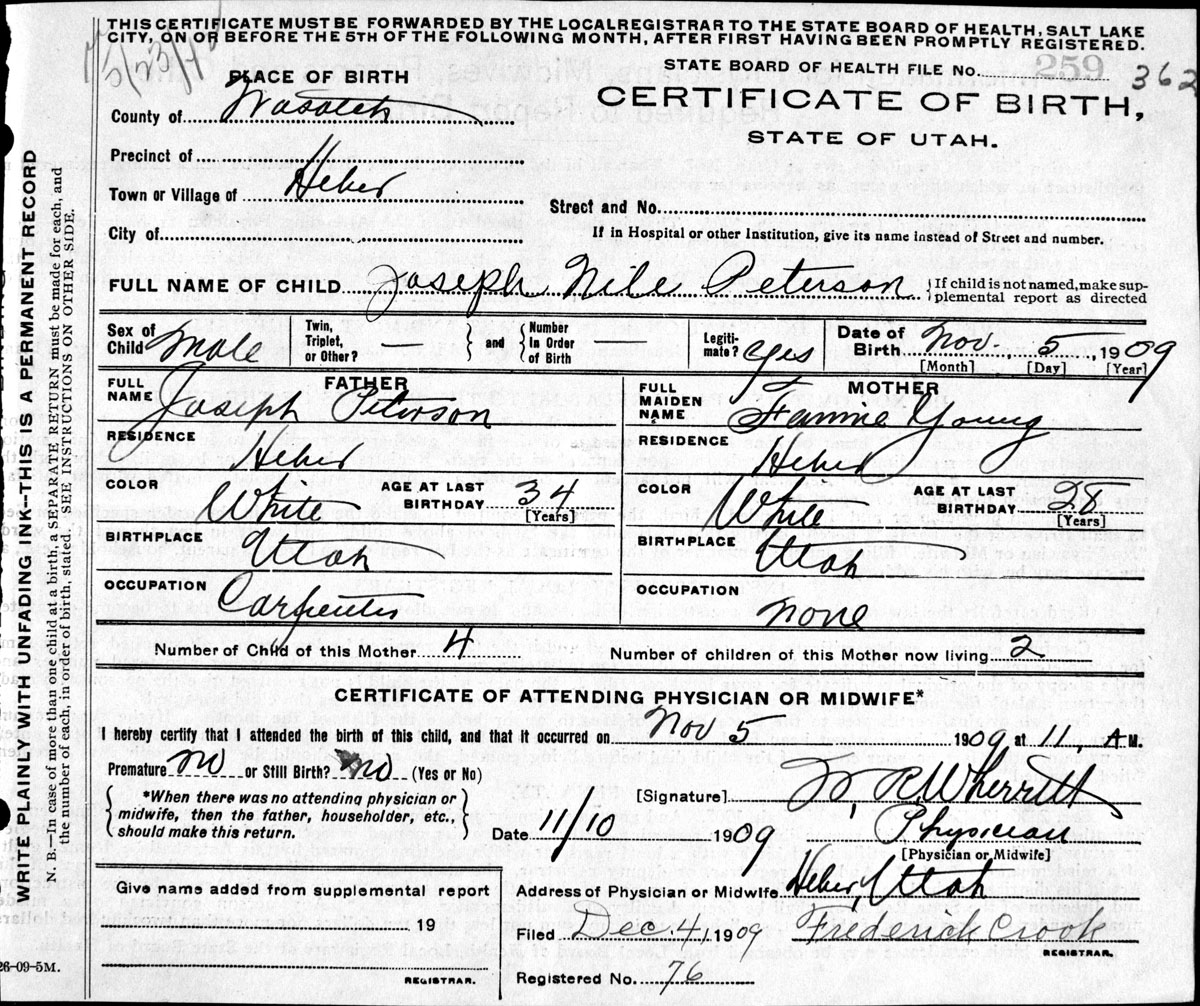 THIS CERTIFICATE MUST BE FORWARDED BY THE LOCAL REGISTRAR TO THE STATE BOARD OF HEALTH, SALT LAKE
CITY, ON OR BEFORE THE 5TH OF THE FOLLOWING MONTH, AFTER FIRST HAVING BEEN PROMPTLY REGISTERED.
STATE BOARD OF HEALTH FILE No. 259 362
PLACE OF BIRTH
CERTIFICATE OF BIRTH,
STATE OF UTAH.
County of Wasatch
Precinct of
Town or Village of Heber
Street and No.
City of
If in Hospital or other Institution, give its name instead of Street and number.
FULL NAME OF CHILD Joseph Nile Peterson { If child is not named, make sup-
plemental report as directed
Sex of Child Male Twin, Triplet, or Other? — } and { Number In Order of Birth — Legiti-mate? yes Date of Birth Nov. 5 1909
[Month] [Day] [Year]
FATHER
FULL NAME Joseph Peterson
RESIDENCE Heber
COLOR White AGE AT LAST BIRTHDAY 34 [Years]
BIRTHPLACE Utah
OCCUPATION Carpenter
MOTHER
FULL MAIDEN NAME Fannie Young
RESIDENCE Heber
COLOR White AGE AT LAST BIRTHDAY 28 [Years]
BIRTHPLACE Utah
OCCUPATION none
Number of Child of this Mother 4 Number of children of this Mother now living 2
CERTIFICATE OF ATTENDING PHYSICIAN OR MIDWIFE*
I hereby certify that I attended the birth of this child, and that it occurred on Nov 5 1909 at 11, A M.
Premature no or Still Birth? no (Yes or No)
{ *When there was no attending physician or
midwife, then the father, householder, etc.,
should make this return. }
[Signature] W. R. Wherritt
Date 11/10 1909 Physician
[Physician or Midwife]
Give name added from supplemental report
19
REGISTRAR.
Address of Physician or Midwife Heber, Utah
Filed Dec. 4, 1909 Frederick Crook
REGISTRAR.
Registered No. 76
26-09-5M.
WRITE PLAINLY WITH UNFADING INK—THIS IS A PERMANENT RECORD
N. B.—In case of more than one child at a birth, a SEPARATE RETURN must be made for each, and
the number of each, in order of birth, stated. SEE INSTRUCTIONS ON OTHER SIDE.